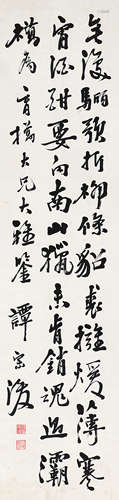 无復驪歌折柳條貂裘擁煖薄寒
宵酒酣要向南山獵未肯銷魂過灞
橋為育大兄大雅鑒 譚宗浚